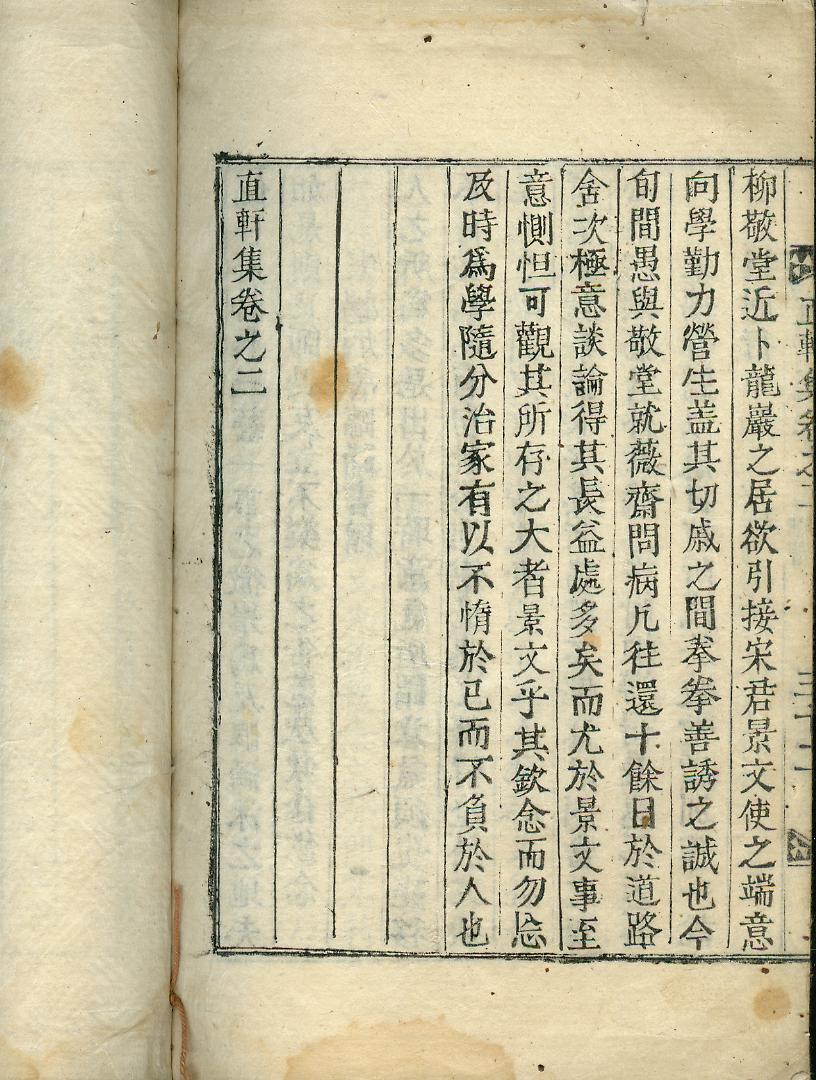 直軒集卷之二
三十二
柳敬堂近卜龍巖之居欲引接宋君景文使之端意
向學勤力營生盖其切戚之間拳拳善誘之誠也今
旬間愚與敬堂就薇齋問病凡往還十餘日於道路
舍次極意談論得其長益處多矣而尤於景文事至
意惻怛可觀其所存之大者景文乎其欽念而勿忘
及時爲學隨分治家有以不惰於己而不負於人也
直軒集卷之二